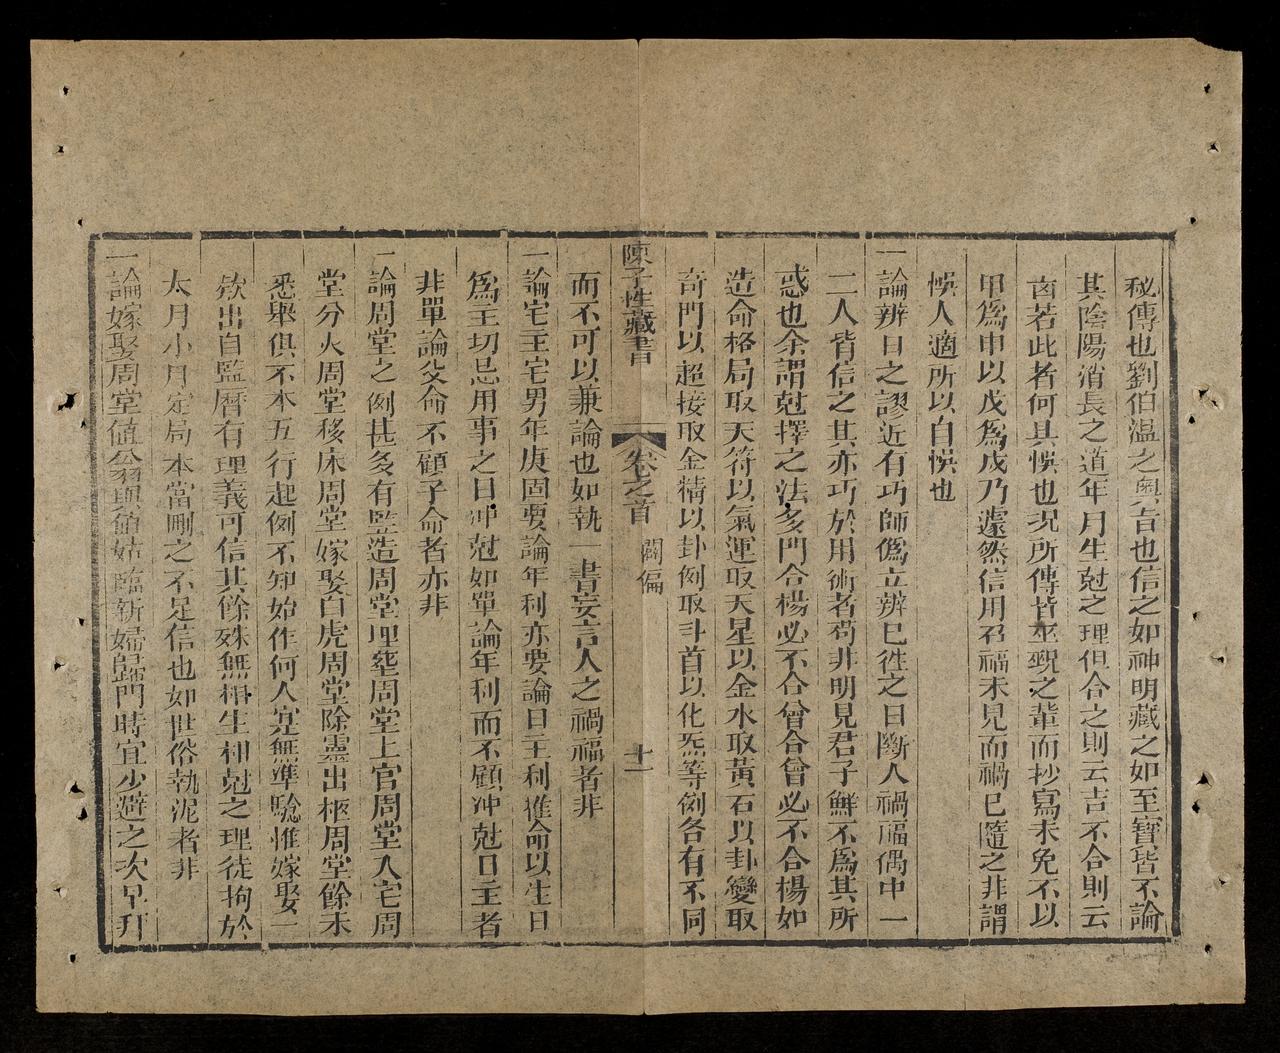 秘傳也劉伯溫之奧旨也信之如神明藏之如至寶皆不論
其陰陽消長之道年月生尅之理但合之則云吉不合則云
凶若此者何其悞也况所傳皆巫覡之輩而抄寫未免不以
甲為申以戊為戌乃遽然信用召福未見而禍已隨之非謂
悞人適所以自悞也
一論辨日之謬近有巧師偽立辨已徃之日斷人禍福偶中一
二人皆信之其亦巧於用術者苟非明見君子鮮不為其所
惑也余謂尅擇之法多門合楊必不合曾合曾必不合楊如
造命格局取天符以氣運取天星以金水取黃石以卦變取
竒門以超接取金精以卦例取斗首以化炁等例各有不同
陳子性藏書
卷之首
闢偏
十一
而不可以兼論也如執一書妄言人之禍福者非
一論宅主宅男年庚固要論年利亦要論日主利推命以生日
為主切忌用事之日冲尅如單論年利而不顧冲尅日主者
非單論父命不顧子命者亦非
一論周堂之例甚多有監造周堂埋塟周堂上官周堂入宅周
堂分火周堂移床周堂嫁娶白虎周堂除靈出柩周堂餘未
悉舉俱不本五行起例不知始作何人寔無準驗惟嫁娶一
欵出自監曆有理義可信其餘殊無相生相尅之理徒拘於
大月小月定局本當刪之不足信也如世俗執泥者非
一論嫁娶周堂値翁與値姑臨新婦歸門時宜少避之次早拜